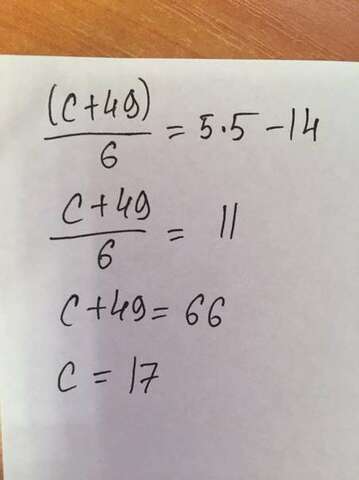 (c+49)/6 = 5·5-14
c+49/6 = 11
c+49 = 66
c = 17